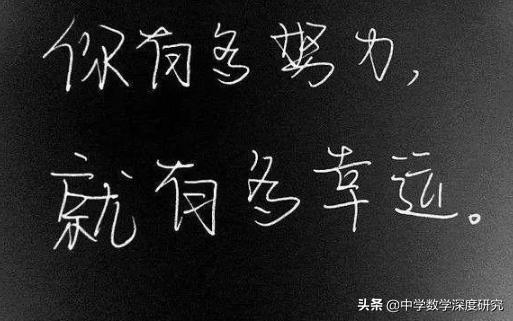 你有多努力，
就有多幸运。
头条 @中学数学深度研究